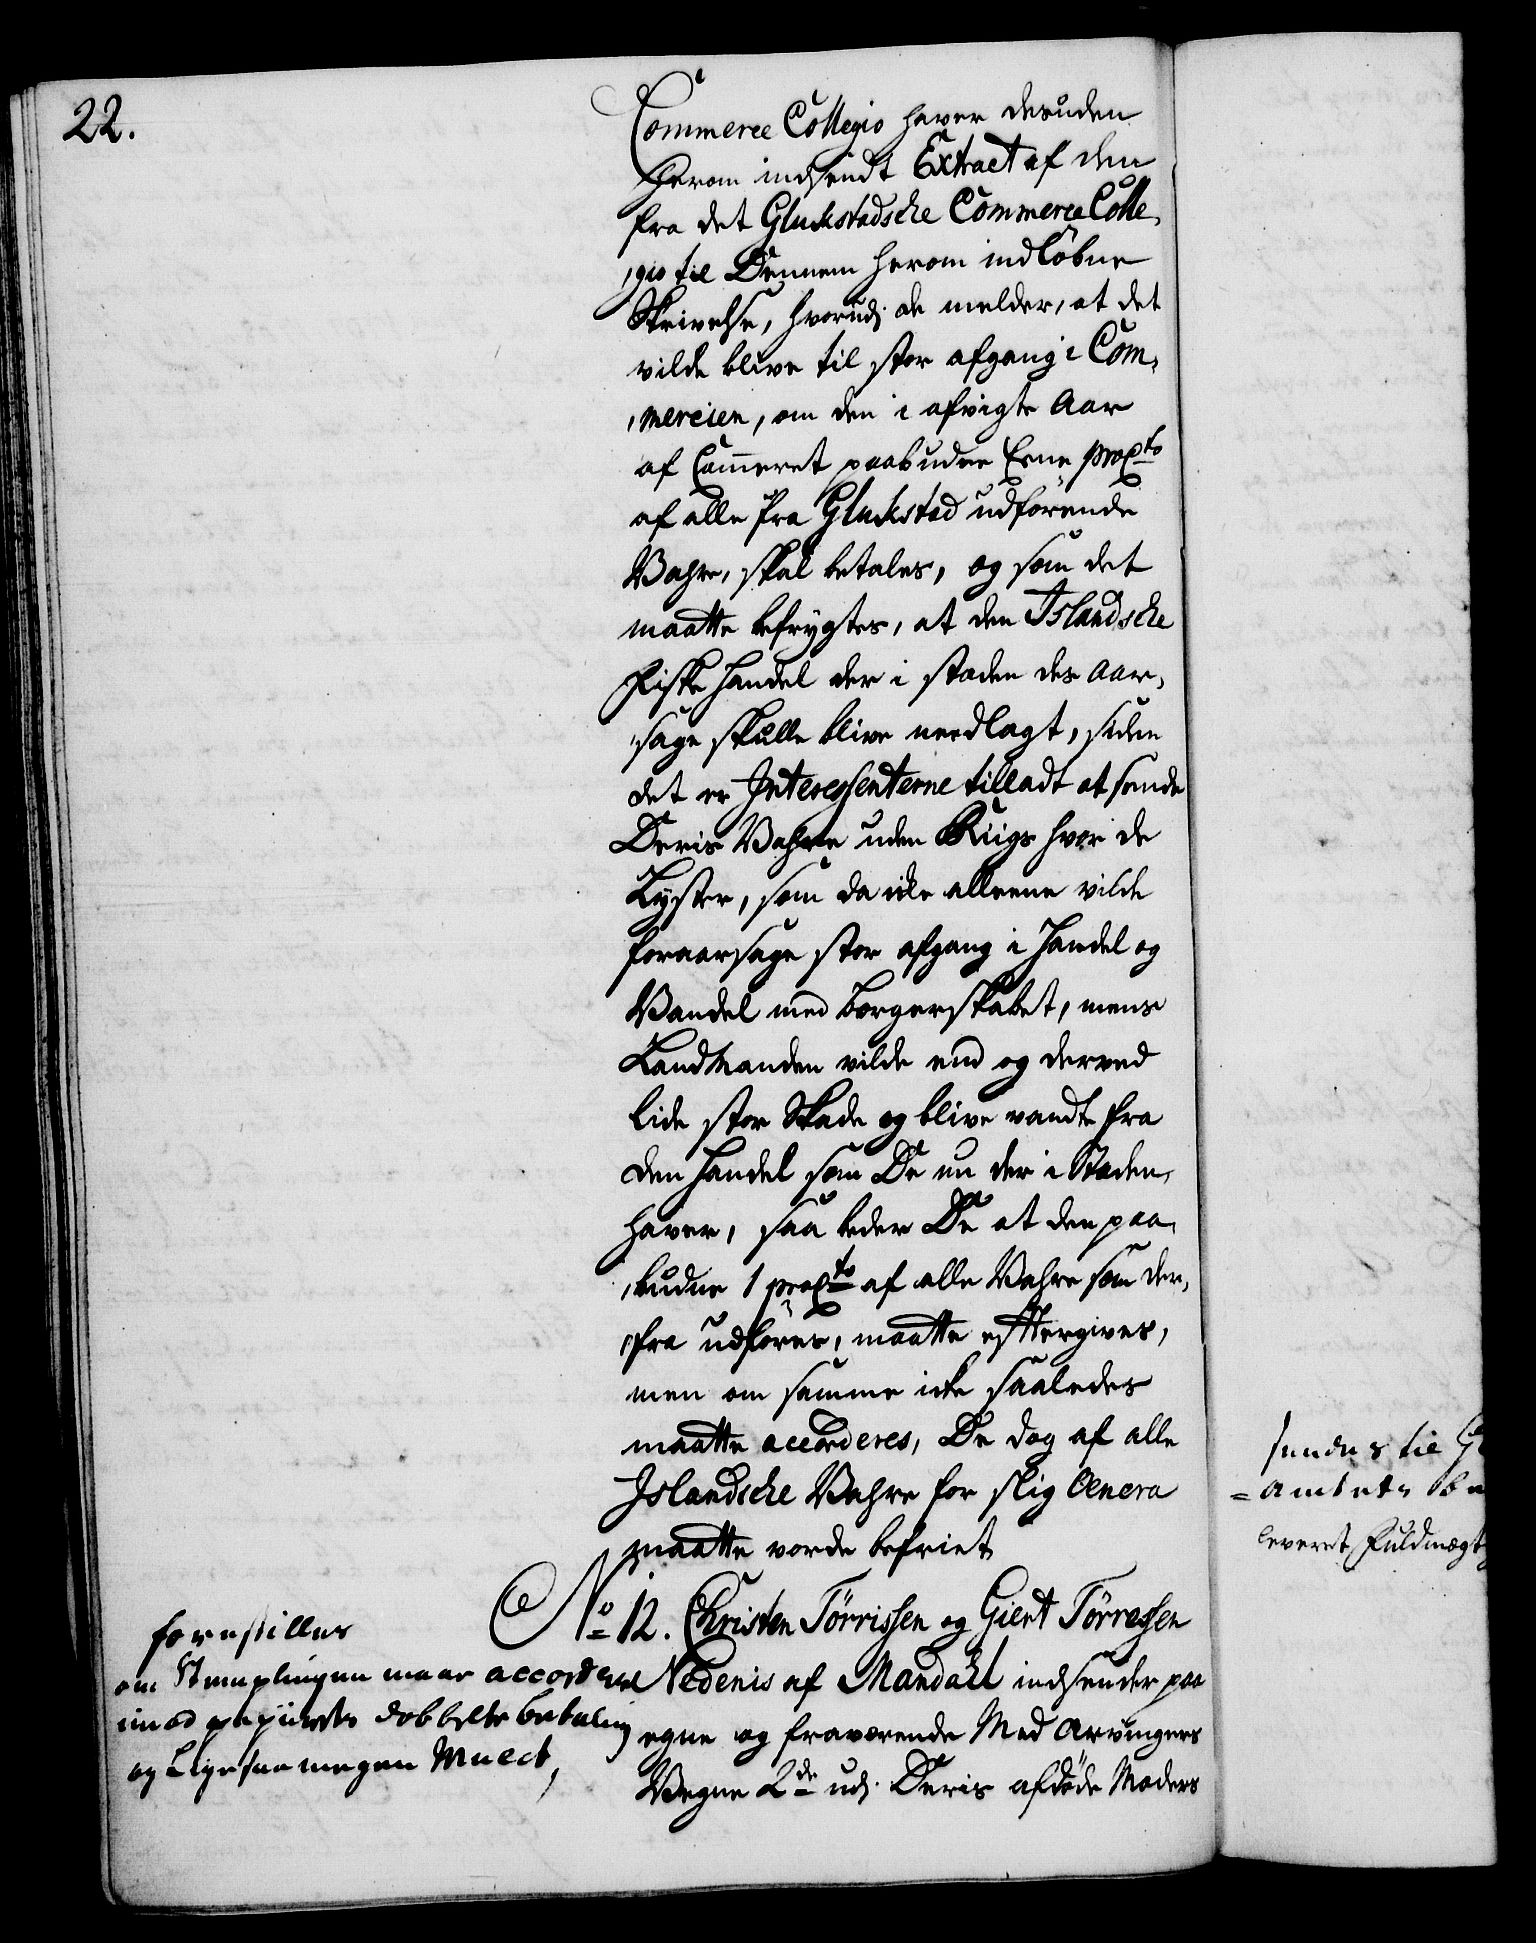 22.
Commerce Collegio haver desuden
herom indsendt Extract af den
fra det Gluckstadsche Commerce Colle,
,gio til Dennem herom indløbne
Skrivelse, hvorudj de melder, at det
vilde blive til stor afgang i Com,
,mercien, om den i afvigte Aar
af Cammeret paabudne Eene proCto
af alle fra Gluckstad udførende
Vahre, skal betales, og som det
maatte befrygtes, at den Islandsche
Fiske Handel der i staden des Aar,
,sage skulle blive needlagt, siden
det er Interessenterne tilladt at sende
Deris Vahre uden Riigs hvor de
Lyster, som da icke alleene vilde
foraarsage stor afgang i Handel og
Vandel med borgerskabet, mens
Landmanden vilde end og derved
lide stor Skade og blive vandte fra
den Handel som De nu der i Staden
haver, saa beder De at den paa,
,budne 1 proCto af alle Vahre som der,
,fra udføres, maatte efftergives,
men om samme icke saaledes
maatte accorderes, De dog af alle
Islandsche Vahre for slig Onera
maatte vorde befriet
No 12. Christen Törrissen og Giert Törressen
Nedenis af Mandahl indsender paa
egne og fraværende Med Arvingers
Vegne 2de udj Deris afdøde Moders
forestilles
om Stemplingen maae accorderes
imod papiirets dobbelte betaling
og Ligesaa megen Mulct,
sendes til
leveret Fuldmægt